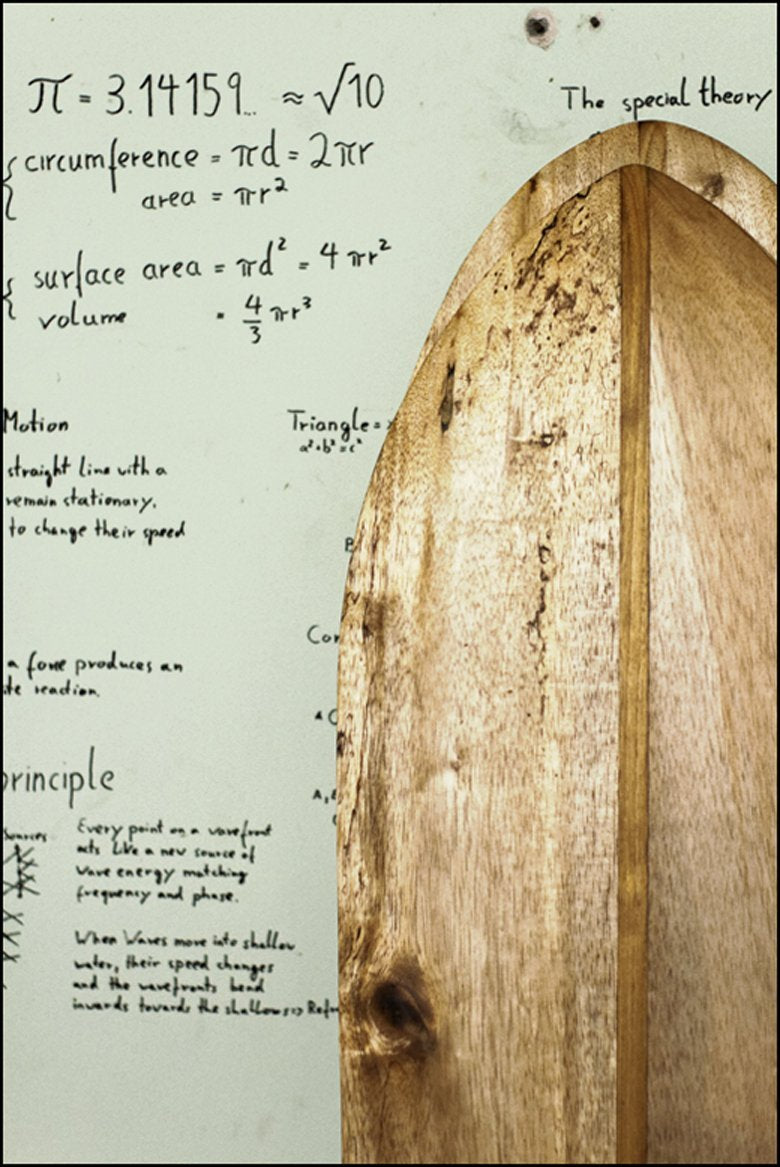 π = 3.14159... ≈ √10
The special theory
circumference = πd = 2πr
area = πr²
surface area = πd² = 4πr²
volume = 4/3 πr³
Motion
Triangle =
a²+b²=c²
straight line with a
remain stationary.
to change their speed
B
Cor
a force produces an
ite reaction.
A C
principle
A,
Sources
Every point on a wavefront
acts like a new source of
wave energy matching
frequency and phase.
When Waves move into shallow
water, their speed changes
and the wavefronts bend
inwards towards the shallows => Refr